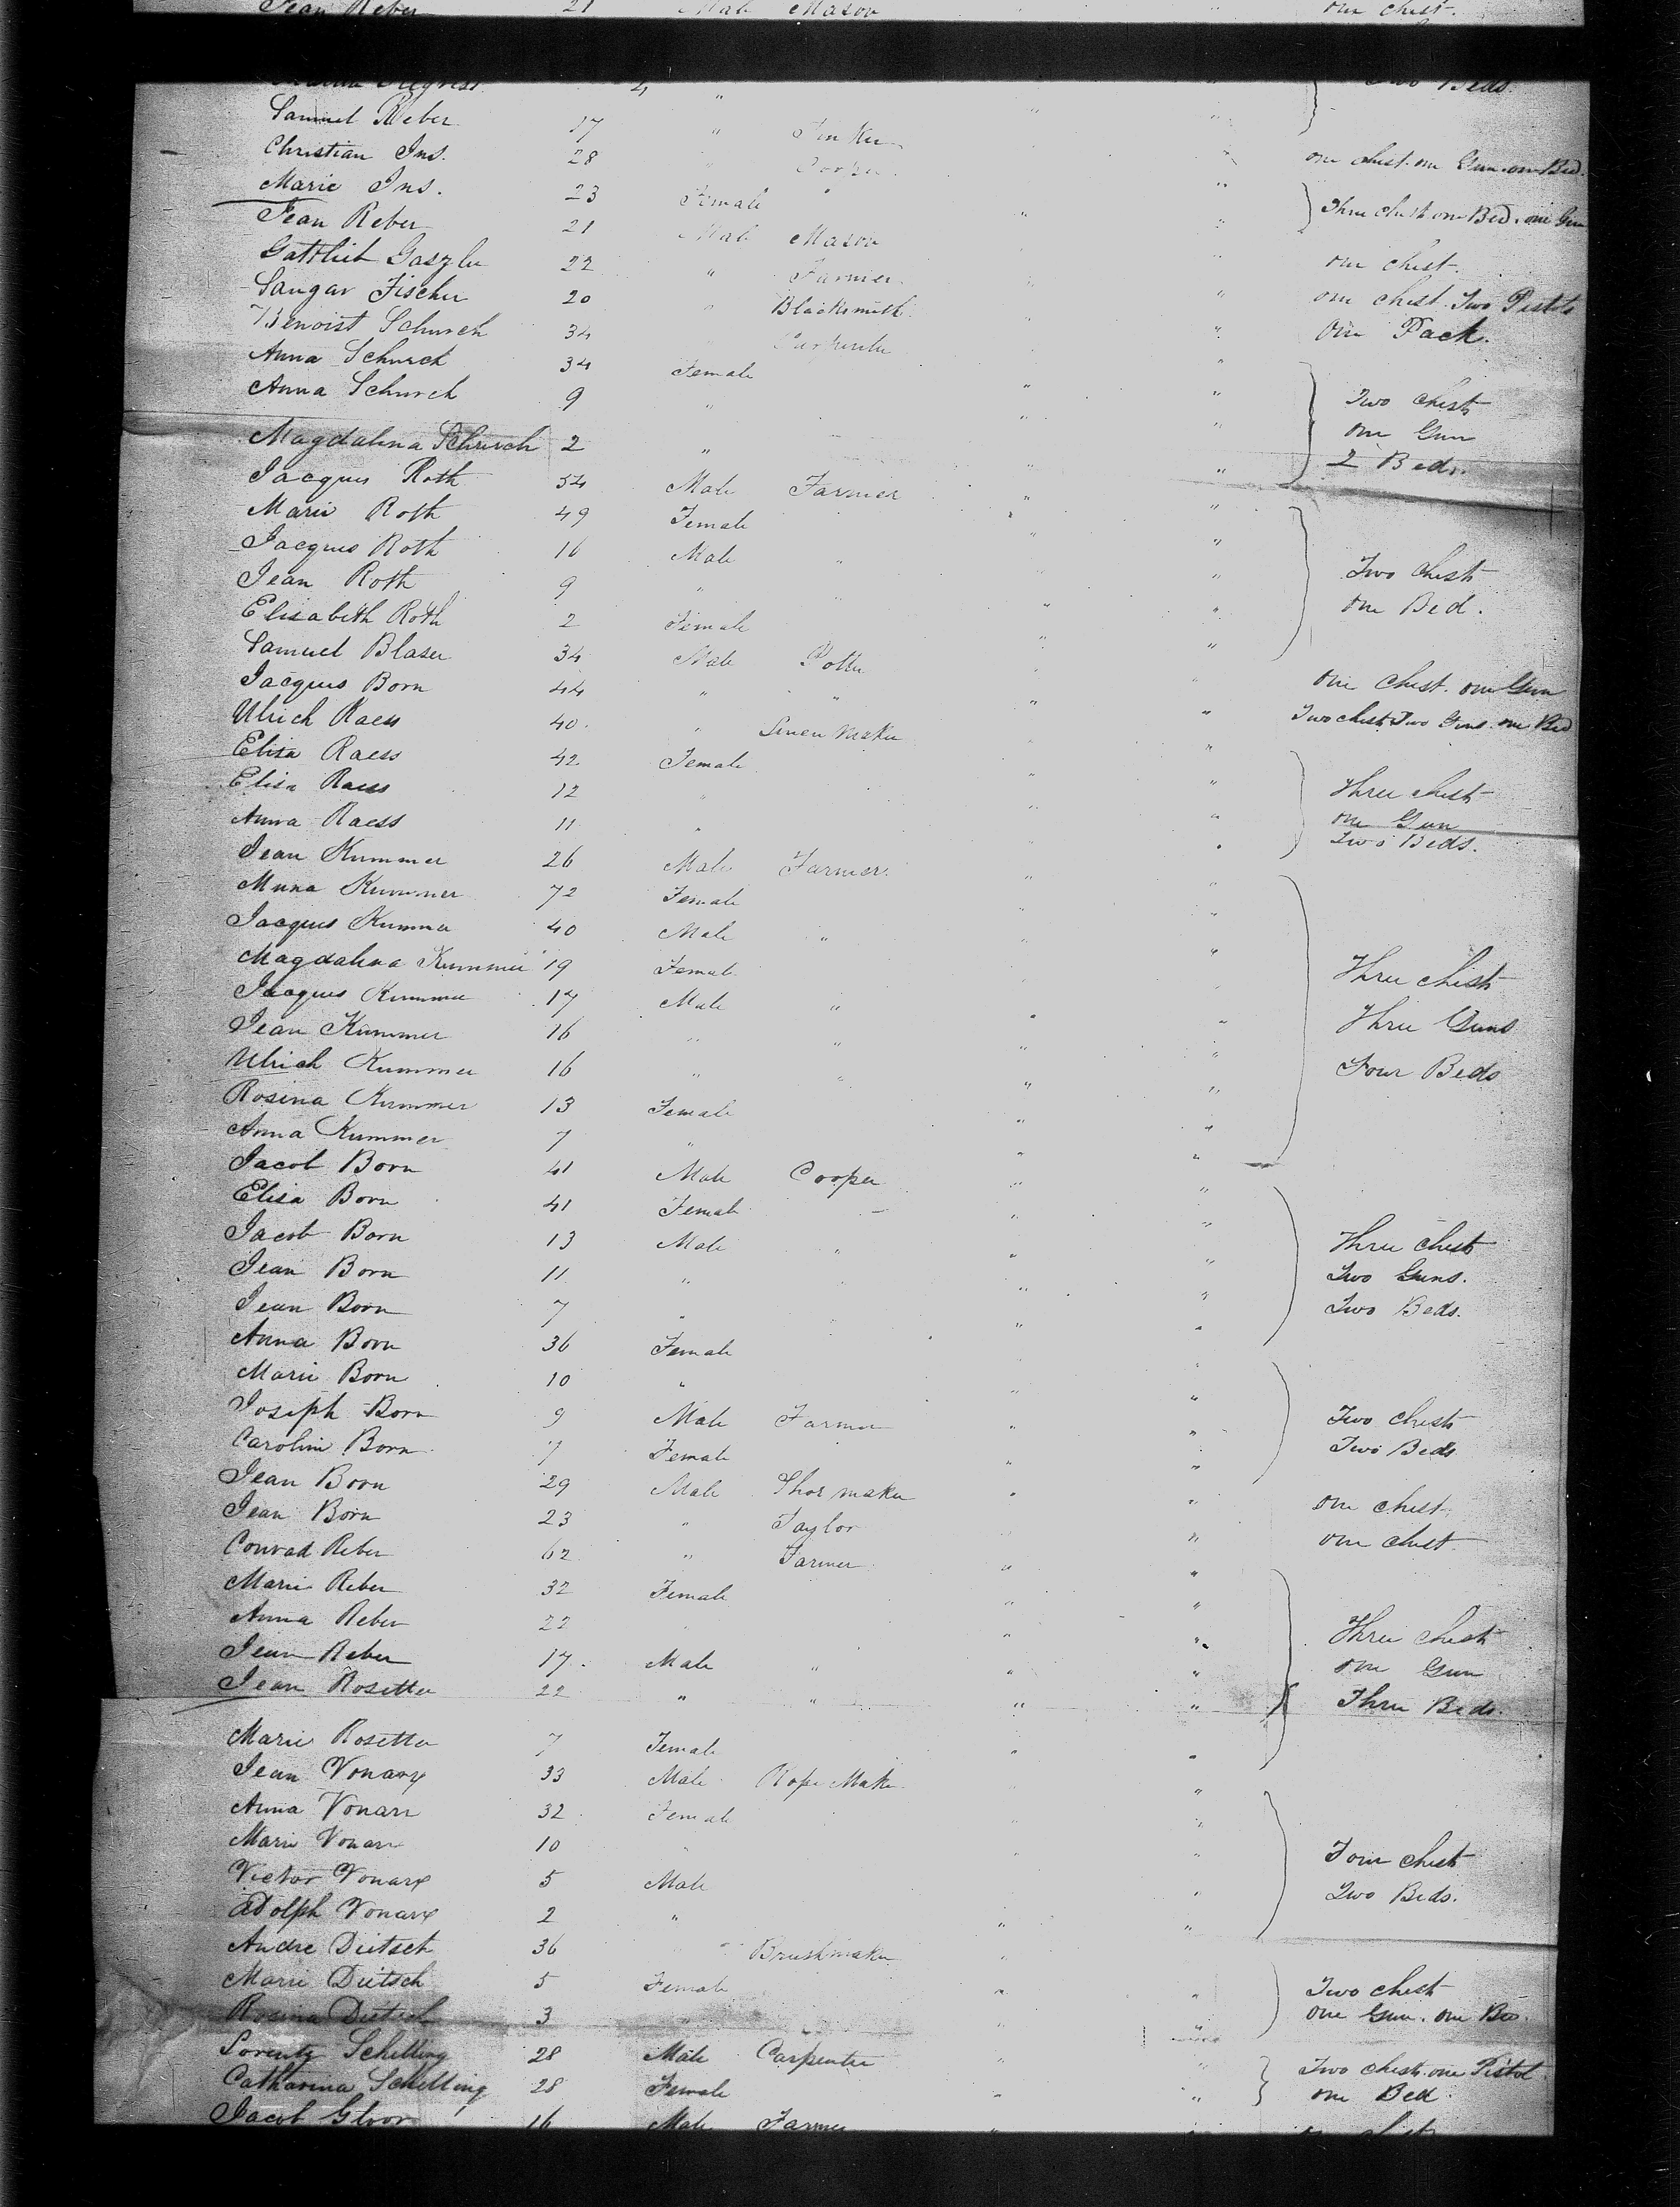 Jean Reber 21 Male Mason one chest.
2 " " " Two Beds.
Samuel Reber 17 " " "
Christian Ins. 28 " Cooper " one chest. one Gun. one Bed.
Marie Ins. 23 Female " " "
Jean Reber 21 Male Mason " Three chest one Bed. one Gun
Gottlieb 22 " Farmer " one chest.
Fischer 20 " Blacksmith " one chest. Two Pistols
Benoist Schurch 34 " Carpenter " one Pack.
Anna Schurch 34 Female " "
Anna Schurch 9 " " " Two chests
one Gun
Magdalena Schurch 2 " " " 2 Beds.
Jacques Roth 54 Male Farmer " "
Marie Roth 49 Female " "
Jacques Roth 16 Male " " " Two chests
Jean Roth 9 " " " one Bed.
Elisabeth Roth 2 Female " "
Samuel Blaser 34 Male Potter " " one chest. one Gun
Jacques Born 44 " " " " Two chest Two Guns. one Bed
Ulrich Raess 40. " Linen Maker " "
Elisa Raess 42 Female " "
Elisa Raess 12 " " " Three chests
Anna Raess 11 " " " one Gun
Two Beds.
Jean Kummer 26 Male Farmer. " "
Muna Kummer 72 Female " "
Jacques Kummer 40 Male " " "
Magdalena Kummer 19 Female " " Three chests
Jacques Kummer 17 Male " " " Three Guns
Jean Kummer 16 " " " "
Ulrich Kummer 16 " " " " Four Beds
Rosina Kummer 13 Female " "
Anna Kummer 7 " " "
Jacob Born 41 Male Cooper " "
Elisa Born 41 Female " "
Jacob Born 13 Male " " " Three chests
Jean Born 11 " " " Two Guns.
Jean Born 7 " " " Two Beds.
Anna Born 36 Female " "
Marie Born 10 " " "
Joseph Born 9 Male Farmer " " Two chests
Caroline Born 7 Female " " Two Beds
Jean Born 29 Male Shoe maker " " one chest
Jean Born 23 " Taylor " " one chest
Conrad Reber 62 " Farmer " "
Marie Reber 32 Female " "
Anna Reber 22 " " " Three chests
Jean Reber 17. Male " " " one Gun
Jean Rosetter 22 " " " " Three Beds.
Marie Rosetter 7 Female " "
Jean Vonarx 33 Male Rope Maker " "
Anna Vonarx 32 Female " "
Marie Vonarx 10 " " " Four chests
Victor Vonarx 5 Male " " Two Beds.
Adolph Vonarx 2 " " "
Andre Dietsch 36 " Brushmaker " "
Marie Dietsch 5 Female " " Two chest
Rosina Dietsch 3 " " " one Gun. one Bed.
Lorentz Schelling 28 Male Carpenter " " Two chests. one Pistol
Catharina Schelling 28 Female " " one Bed
Jacob Gloor 16 Male Farmer " "